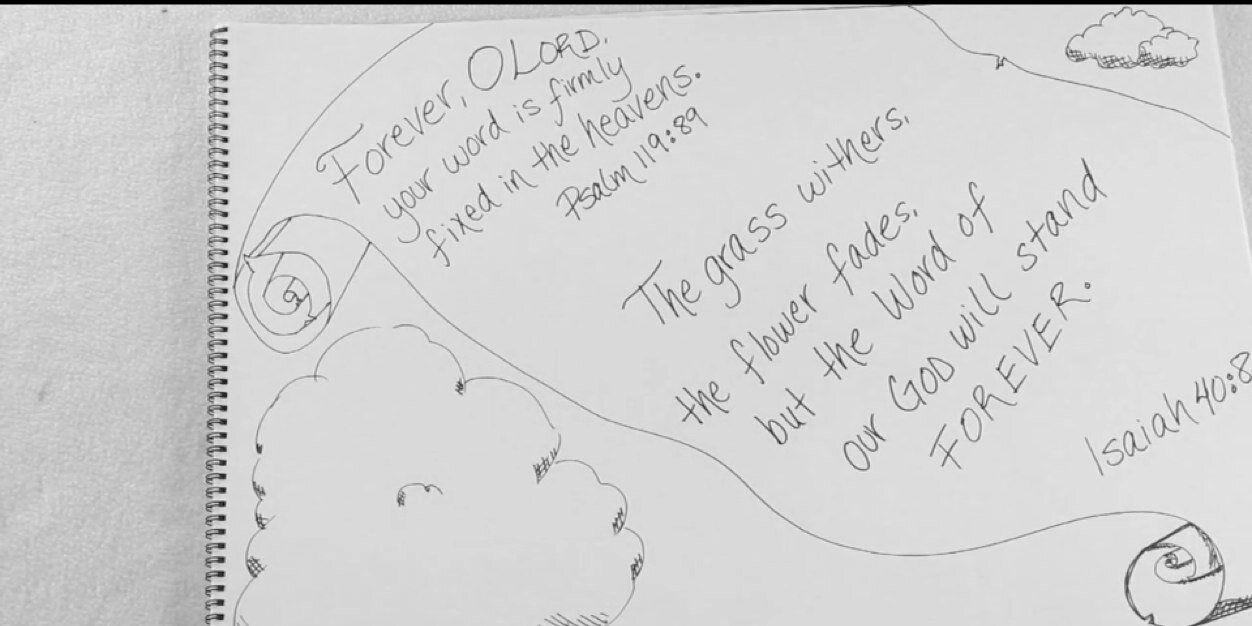 Forever, O LORD,
your word is firmly
fixed in the heavens.
Psalm 119:89
The grass withers,
the flower fades,
but the Word of
our GOD will stand
FOREVER.
Isaiah 40:8